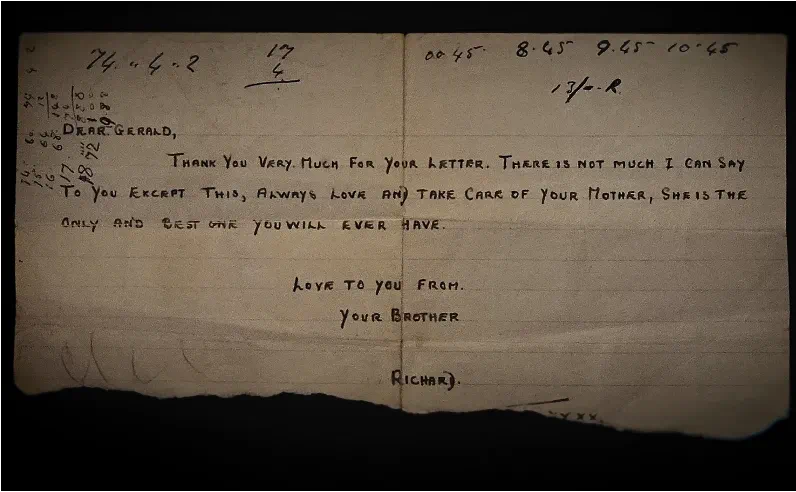 74 . 4 . 2
17
4
00.45 8.45 9.45 10.45
13/-.R.
DEAR. GERALD,
THANK YOU VERY. MUCH FOR YOUR LETTER. THERE IS NOT MUCH I CAN SAY
TO YOU EXCEPT THIS, ALWAYS LOVE AND TAKE CARE OF YOUR MOTHER, SHE IS THE
ONLY AND BEST ONE YOU WILL EVER HAVE.
LOVE TO YOU FROM.
YOUR BROTHER
RICHARD.